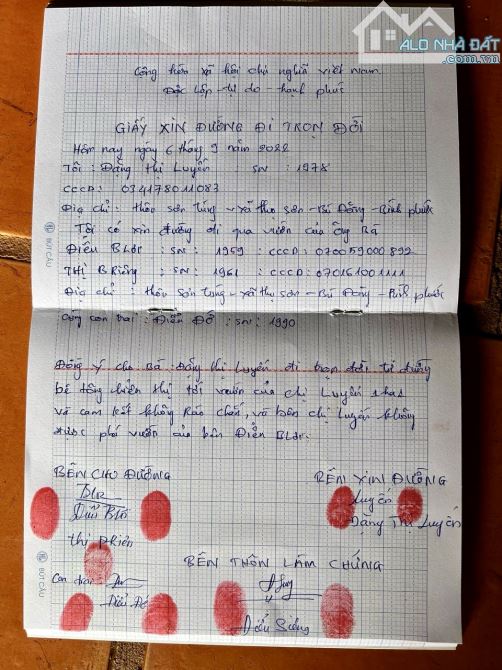 ALO NHÀ ĐẤT
.com.vn
Cộng hòa xã hội chủ nghĩa việt Nam
Độc lập - tự do - hạnh phúc
GIẤY XIN ĐƯỜNG ĐI TRỌN ĐỜI
Hôm nay ngày 6 tháng 9 năm 2022
Tôi : Đặng Thị Luyến : SN : 1978
CCCD : 034178011083
Địa chỉ : thôn sơn tùng - xã thọ sơn - Bù Đăng - Bình phước
Tôi có xin đường đi qua vườn của Ông Bà
Điểu BLơr : SN : 1959 : CCCD : 070059000892
THỊ BRiêng : SN : 1961 : CCCD : 070161001111
Địa chỉ : thôn sơn tùng - xã thọ sơn - Bù Đăng - Bình phước
Cùng con trai : Điểu Đố : SN : 1990
Đồng Ý cho Bà : Đặng thị Luyến đi trọn đời từ đường
bê tông hiển thị tới vườn của chị Luyến
và cam kết không Rào chắn, và bên chị Luyến không
được phá vườn của bên Điểu BLơr.
BÊN CHO ĐƯỜNG
BÊN XIN ĐƯỜNG
Luyến
Đặng Thị Luyến
BÊN THÔN LÀM CHỨNG
Con trai
Điểu Đố
BÚT CẦU
BÚT CẦU